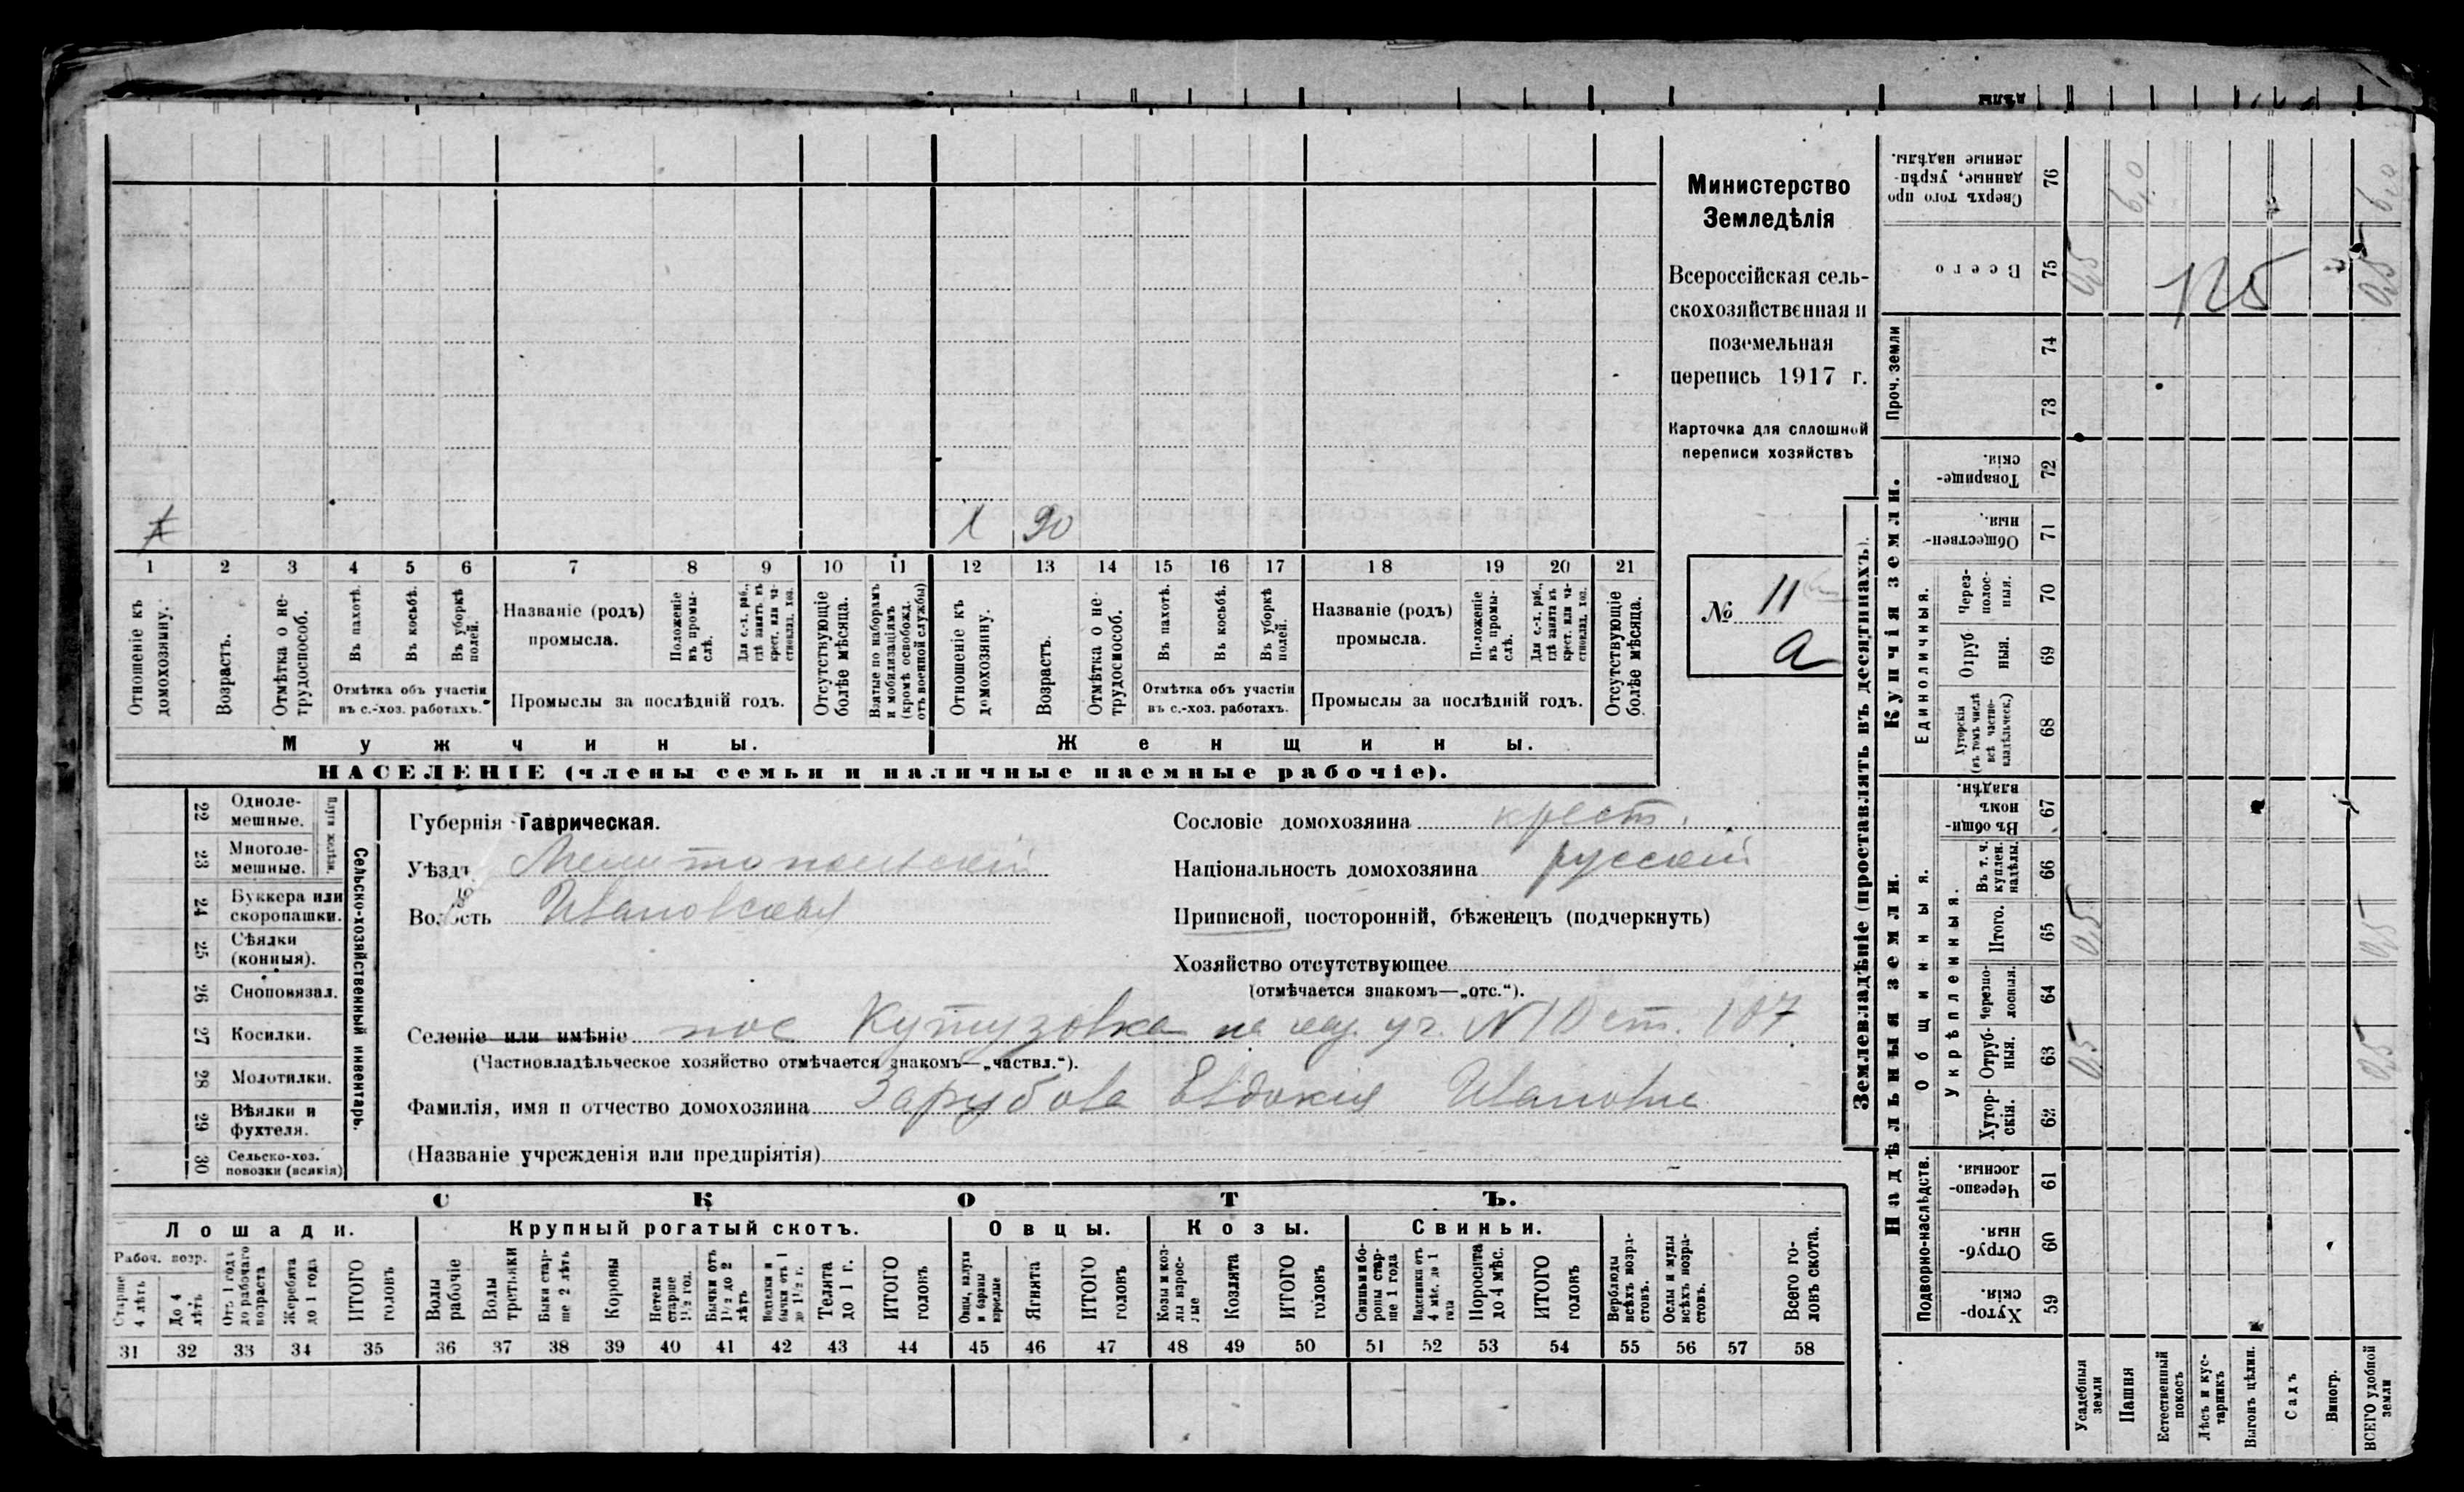 Министерство
Земледѣлія
Всероссійская сель-
скохозяйственная и
поземельная
перепись 1917 г.
Карточка для сплошной
переписи хозяйствъ
№ 11
а
1 90
1 2 3 4 5 6 7 8 9 10 11 12 13 14 15 16 17 18 19 20 21
Отношеніе къ домохозяину.
Возрастъ.
Отмѣтка о не-трудоспособ.
Въ пахотѣ.
Въ косьбѣ.
Въ уборкѣ полей.
Отмѣтка объ участіи
въ с.-хоз. работахъ.
Названіе (родъ)
промысла.
Положеніе въ промы-слѣ.
Для с.-х. раб., гдѣ занятъ въ крест. или ча-стновлад. хоз.
Промыслы за послѣдній годъ.
Отсутствующіе болѣе мѣсяца.
Взятые по наборамъ и мобилизаціямъ (кромѣ освобожд. отъ военной службы)
Отношеніе къ домохозяину.
Возрастъ.
Отмѣтка о не-трудоспособ.
Въ пахотѣ.
Въ косьбѣ.
Въ уборкѣ полей.
Отмѣтка объ участіи
въ с.-хоз. работахъ.
Названіе (родъ)
промысла.
Положеніе въ промы-слѣ.
Для с.-х. раб., гдѣ занята въ крест. или ча-стновлад. хоз.
Промыслы за послѣдній годъ.
Отсутствующіе болѣе мѣсяца.
Мужчины. Женщины.
НАСЕЛЕНІЕ (члены семьи и наличные наемные рабочіе).
Сельско-хозяйственный инвентарь.
Плуги желѣзн.
22 Одноле-мешные.
23 Многоле-мешные.
24 Буккера или скоропашки.
25 Сѣялки (конныя).
26 Сноповязал.
27 Косилки.
28 Молотилки.
29 Вѣялки и фухтеля.
30 Сельско-хоз. повозки (всякія)
Губернія Таврическая.
Уѣздъ Мелитопольскій
Волость Ивановская
Сословіе домохозяина крест.
Національность домохозяина русскій
Приписной, посторонній, бѣженецъ (подчеркнуть)
Хозяйство отсутствующее
(отмѣчается знакомъ—„отс.“).
Селеніе или имѣніе пос Кутузовка на уч. N 10 ст. 107
(Частновладѣльческое хозяйство отмѣчается знакомъ—„частвл.“).
Фамилія, имя и отчество домохозяина Зарубова Евдокія Ивановна
(Названіе учрежденія или предпріятія)
СКОТЪ.
Лошади. Крупный рогатый скотъ. Овцы. Козы. Свиньи.
Рабоч. возр.
Старше 4 лѣтъ
До 4 лѣтъ
Отъ 1 года до рабочаго возраста
Жеребята до 1 года
ИТОГО головъ
Волы рабочіе
Волы третьяки
Быки стар-ше 2 лѣтъ
Коровы
Нетели старше 1½ год.
Бычки отъ 1½ до 2 лѣтъ
Нетельки и бычки отъ 1 до 1½ г.
Телята до 1 г.
ИТОГО головъ
Овцы, валухи и бараны взрослые
Ягнята
ИТОГО головъ
Козы и коз-лы взрос-лые
Козлята
ИТОГО головъ
Свиньи и бо-ровы стар-ше 1 года
Подсвинки отъ 4 мѣс. до 1 года
Поросята до 4 мѣс.
ИТОГО головъ
Верблюды всѣхъ возра-стовъ.
Ослы и мулы всѣхъ возра-стовъ.
Всего го-ловъ скота.
31 32 33 34 35 36 37 38 39 40 41 42 43 44 45 46 47 48 49 50 51 52 53 54 55 56 57 58
Землевладѣніе (проставлять въ десятинахъ).
Надѣльныя земли.
Купчія земли.
Проч. земли
Сверхъ того про-данные, укрѣп-ленные надѣлы. 76 6,0 6,0
Всего 75 0,5 125 0,5
74
73
Товарище-скія. 72
Обществен-ныя. 71
Единоличныя.
Через-полос-ныя. 70
Отруб-ныя. 69
Хуторскія (въ томъ числѣ всѣ частно-владѣльческ.) 68
Общинныя.
Въ общин-номъ владѣн. 67
Укрѣпленныя.
Въ т. ч. куплен. надѣлы. 66
Итого. 65 0,5 0,5
Черезпо-лосныя. 64
Отруб-ныя. 63 0,5 0,5
Хутор-скія. 62
Подворно-наслѣдств.
Черезпо-лосныя. 61
Отруб-ныя. 60
Хутор-скія. 59
Усадебныя земли
Пашня
Естественный покосъ
Лѣсъ и кус-тарникъ
Выгонъ цѣлин.
Садъ
Виногр.
ВСЕГО удобной земли